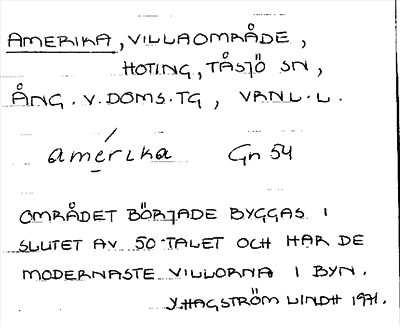 AMERIKA, VILLAOMRÅDE,
HOTING, TÅSJÖ SN,
ÅNG. V. DOMS. TG, VRNL. L.
amérika Gn 54
OMRÅDET BÖRJADE BYGGAS I
SLUTET AV 50-TALET OCH HAR DE
MODERNASTE VILLORNA I BYN.
Y. HAGSTRÖM LINDH 1971.